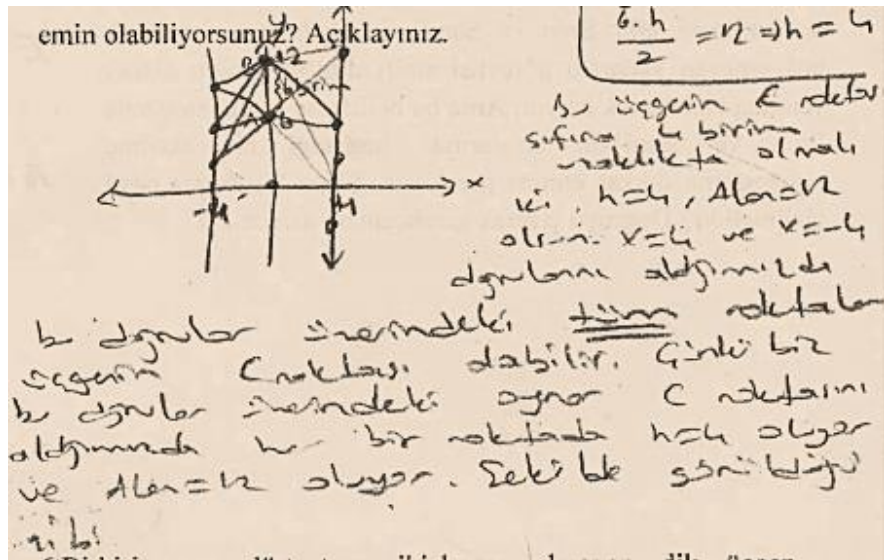 emin olabiliyorsunuz? Açıklayınız.
6.h/2 = 12 => h = 4
y
B 12
6 birim
A 6
x
-4 4
bu üçgenin C noktası
sıfıra 4 birim
uzaklıkta olmalı
ki h=4, Alan=12
olsun. x=4 ve x=-4
doğrularını aldığımızda
bu doğrular üzerindeki tüm noktalar
üçgenin C noktası olabilir. Çünkü biz
bu doğrular üzerindeki C noktasını
aldığımızda her bir noktada h=4 oluyor
ve Alan=12 oluyor. Şekilde görüldüğü
gibi